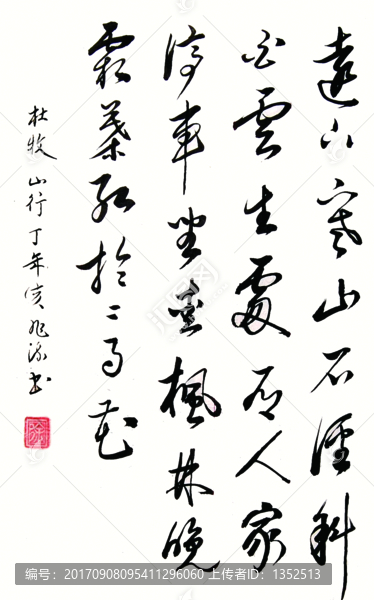 遠上寒山石徑斜
白雲生處有人家
停車坐愛楓林晚
霜葉紅於二月花
杜牧 山行 丁年亥 書
编号：20170908095411296060 上传者ID：1352513